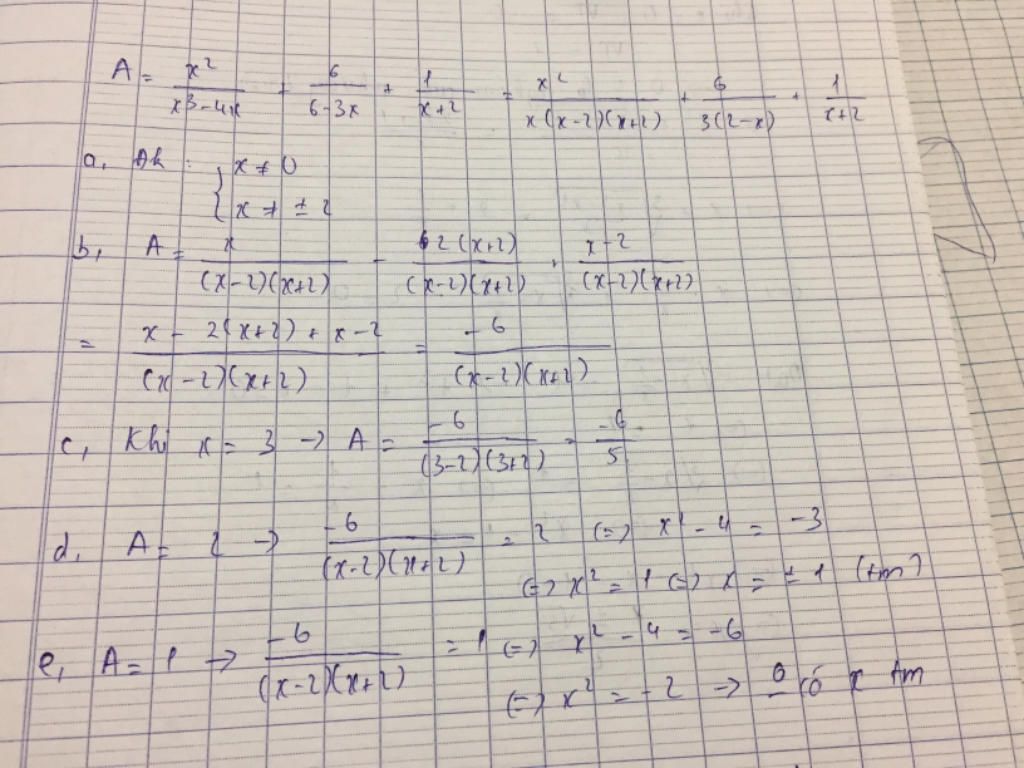 A = x²/(x³-4x) + 6/(6-3x) + 1/(x+2) = x²/(x(x-2)(x+2)) + 6/(3(2-x)) + 1/(x+2)
a, Đk : { x ≠ 0
x ≠ ± 2
b, A = x/((x-2)(x+2)) - 2(x+2)/((x-2)(x+2)) + (x-2)/((x-2)(x+2))
= (x - 2(x+2) + x-2)/((x-2)(x+2)) = -6/((x-2)(x+2))
c, Khi x = 3 → A = -6/((3-2)(3+2)) = -6/5
d, A = 2 → -6/((x-2)(x+2)) = 2 (=) x² - 4 = -3
(=) x² = 1 (=) x = ± 1 (tm)
e, A = 1 → -6/((x-2)(x+2)) = 1 (=) x² - 4 = -6
(=) x² = -2 → có x tm